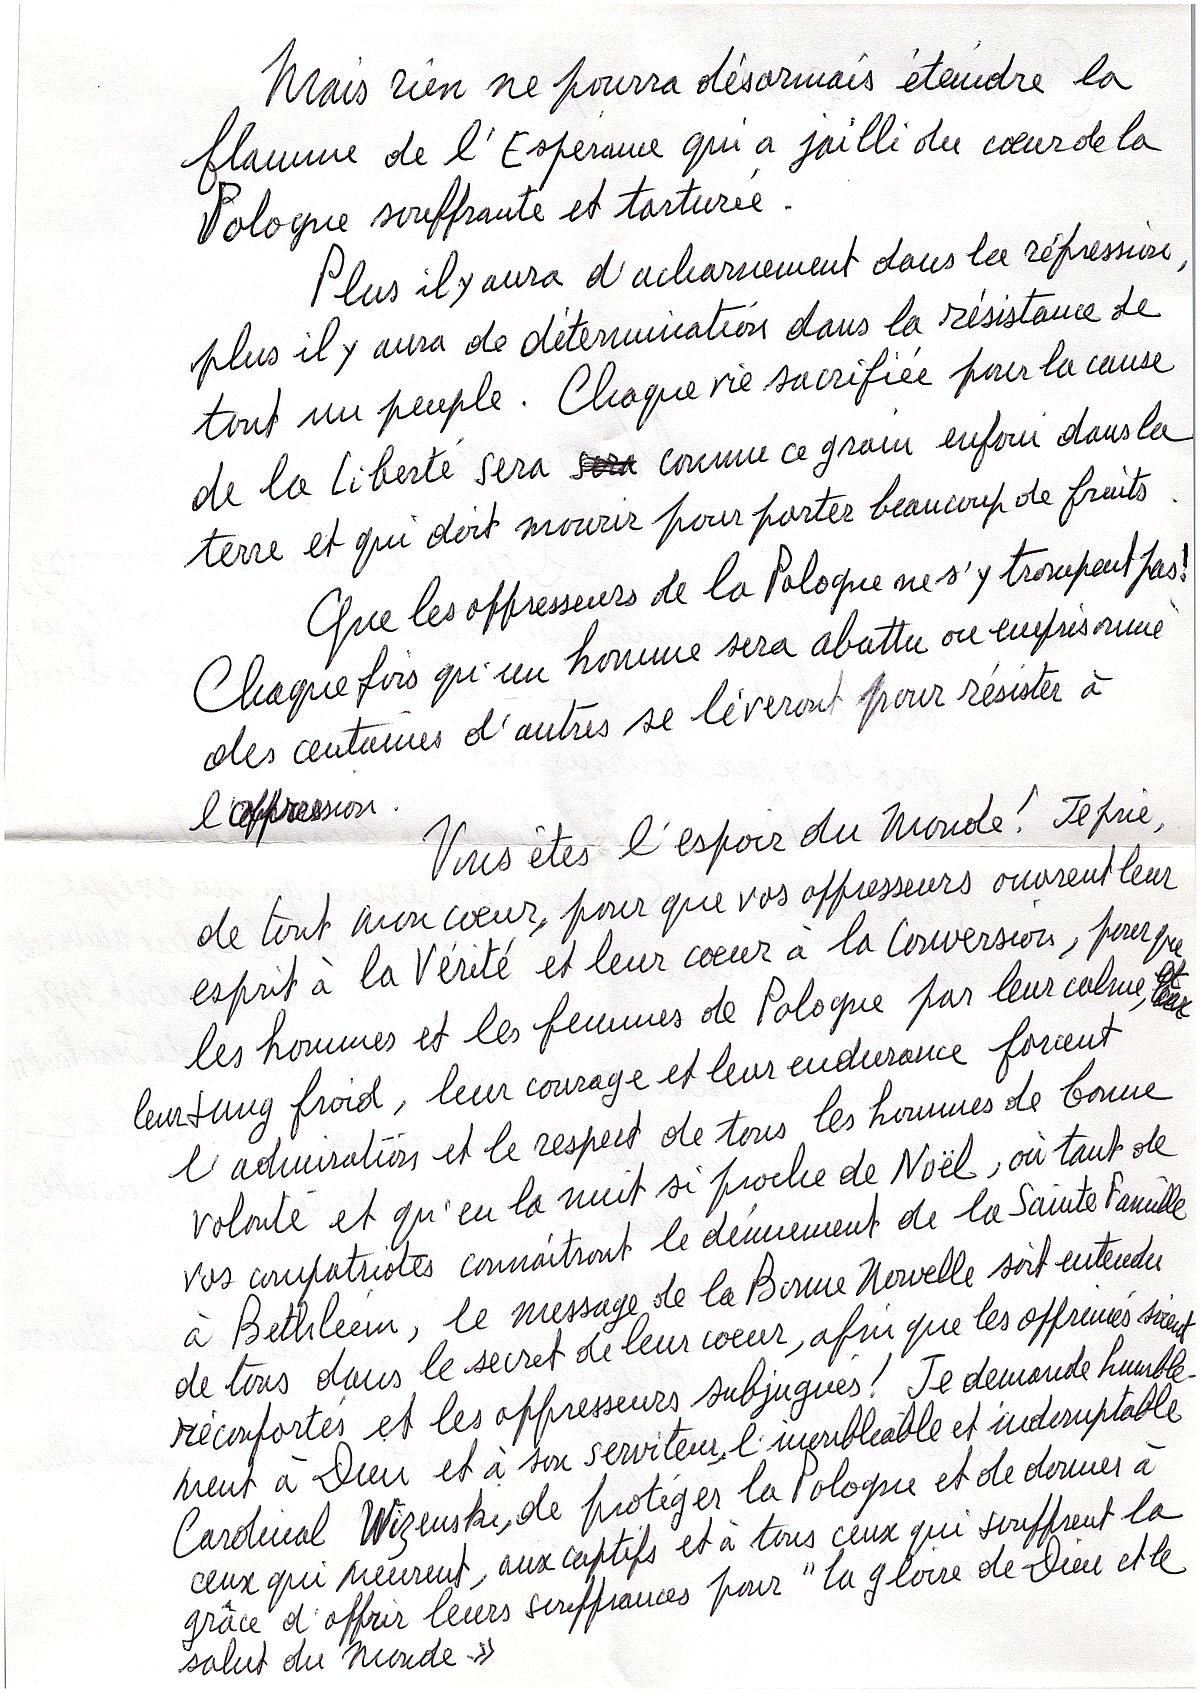 Mais rien ne pourra désormais éteindre la
flamme de l'Espérance qui a jailli du cœur de la
Pologne souffrante et torturée.
Plus il y aura d'acharnement dans la répression,
plus il y aura de détermination dans la résistance de
tout un peuple. Chaque vie sacrifiée pour la cause
de la Liberté sera sera comme ce grain enfoui dans la
terre et qui doit mourir pour porter beaucoup de fruits.
Que les oppresseurs de la Pologne ne s'y trompent pas!
Chaque fois qu'un homme sera abattu ou emprisonné
des centaines d'autres se lèveront pour résister à
l'oppression.
Vous êtes l'espoir du Monde! Je prie,
de tout mon cœur, pour que vos oppresseurs ouvrent leur
esprit à la Vérité et leur cœur à la Conversion, pour que
les hommes et les femmes de Pologne par leur calme, et
leur sang froid, leur courage et leur endurance forcent
l'admiration et le respect de tous les hommes de bonne
volonté et qu'en la nuit si proche de Noël, où tant de
vos compatriotes connaîtront le dénuement de la Sainte Famille
à Bethléem, le message de la Bonne Nouvelle soit entendu
de tous dans le secret de leur cœur, afin que les opprimés soient
réconfortés et les oppresseurs subjugués! Je demande humble-
ment à Dieu et à son serviteur, l'inoubliable et indomptable
Cardinal Wizenski, de protéger la Pologne et de donner à
ceux qui meurent, aux captifs et à tous ceux qui souffrent la
grâce d'offrir leurs souffrances pour "la gloire de Dieu et le
salut du Monde.»